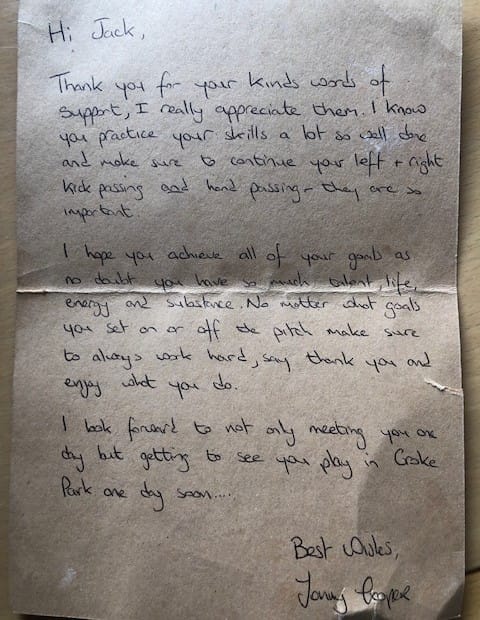 Hi Jack,
Thank you for your kinds words of
support, I really appreciate them. I know
you practice your skills a lot so well done
and make sure to continue your left + right
kick passing and hand passing - they are so
important.
I hope you achieve all of your goals as
no doubt you have so much talent, life,
energy and substance. No matter what goals
you set on or off the pitch make sure
to always work hard, say thank you and
enjoy what you do.
I look forward to not only meeting you one
day but getting to see you play in Croke
Park one day soon....
Best Wishes,
Jonny Cooper